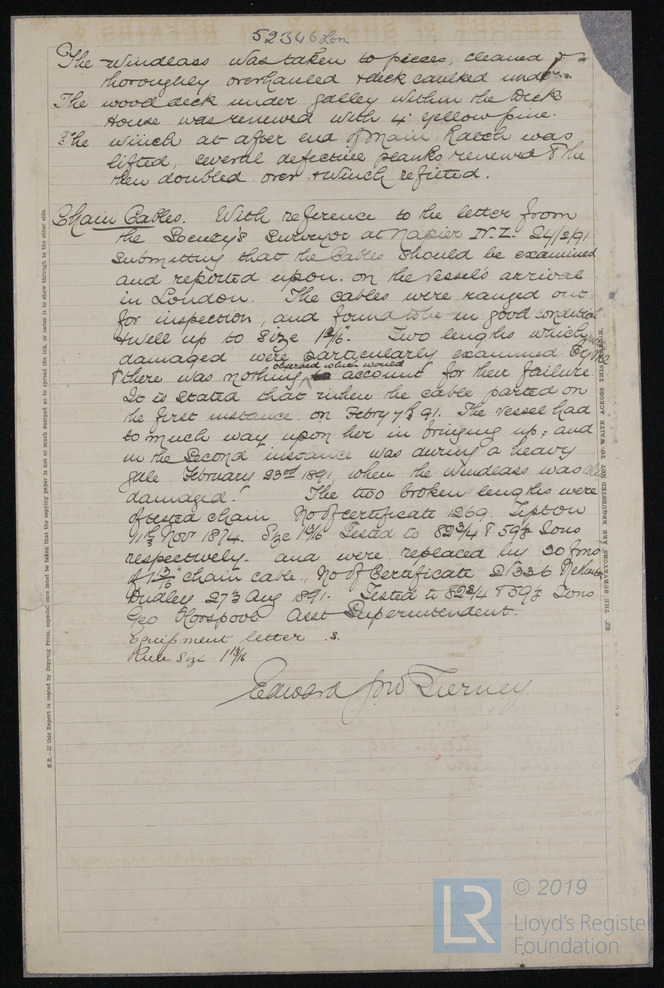 52346 Lon
The Windlass was taken to pieces, cleaned &
thoroughly overhauled & deck caulked under.
The wood deck under galley within the Deck
House was renewed with 4" yellow pine.
The winch at after end of Main Hatch was
lifted, several defective planks renewed & the
then doubled over & Winch refitted.
Chain Cables. With reference to the letter from
the Society's Surveyor at Napier N.Z. 24/2/91
submitting that the Cables should be examined
and reported upon on the Vessel's arrival
in London. The cables were ranged out
for inspection, and found to be in good condition
& well up to Size 1 13/16". Two lengths which
damaged were particularly examined by me
observed which would
& there was nothing to account for their failure
It is stated that when the cable parted on
the first instance on Febry 7th 91. The Vessel had
to much way upon her in bringing up; and
in the Second instance was during a heavy
gale February 23rd 1891, when the windlass was also
damaged. The two broken lengths were
of tested chain No of certificate 1269. Tipton
Nov 1874. Size 1 13/16 Tested to 82 3/4 & 59 Tons
respectively. and were replaced by 30 fms
of 1 13/16" chain cable, No of Certificate
Dudley 27th Aug 1891. Tested to 82 3/4 & 59 Tons
Geo Asst Superintendent.
Equipment letter S.
Rule Size 1 13/16
Edward Jno Tierney
N.B.—If this Report is copied by Copying Press, especial care must be taken that the copying paper is not so much damped as to spread the ink, or cause it to show through to the other side.
THE SURVEYORS ARE REQUESTED NOT TO WRITE ACROSS THIS MARGIN.
LR
© 2019
Lloyd's Register
Foundation